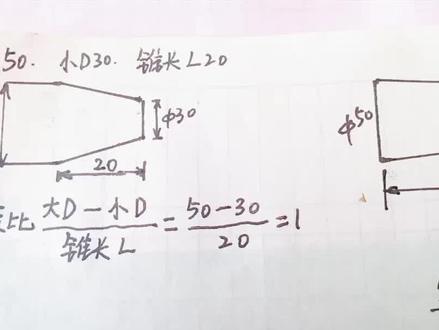 50. 小D30. 锥长L20
φ30
φ50
20
比 大D-小D/锥长L = 50-30/20 = 1